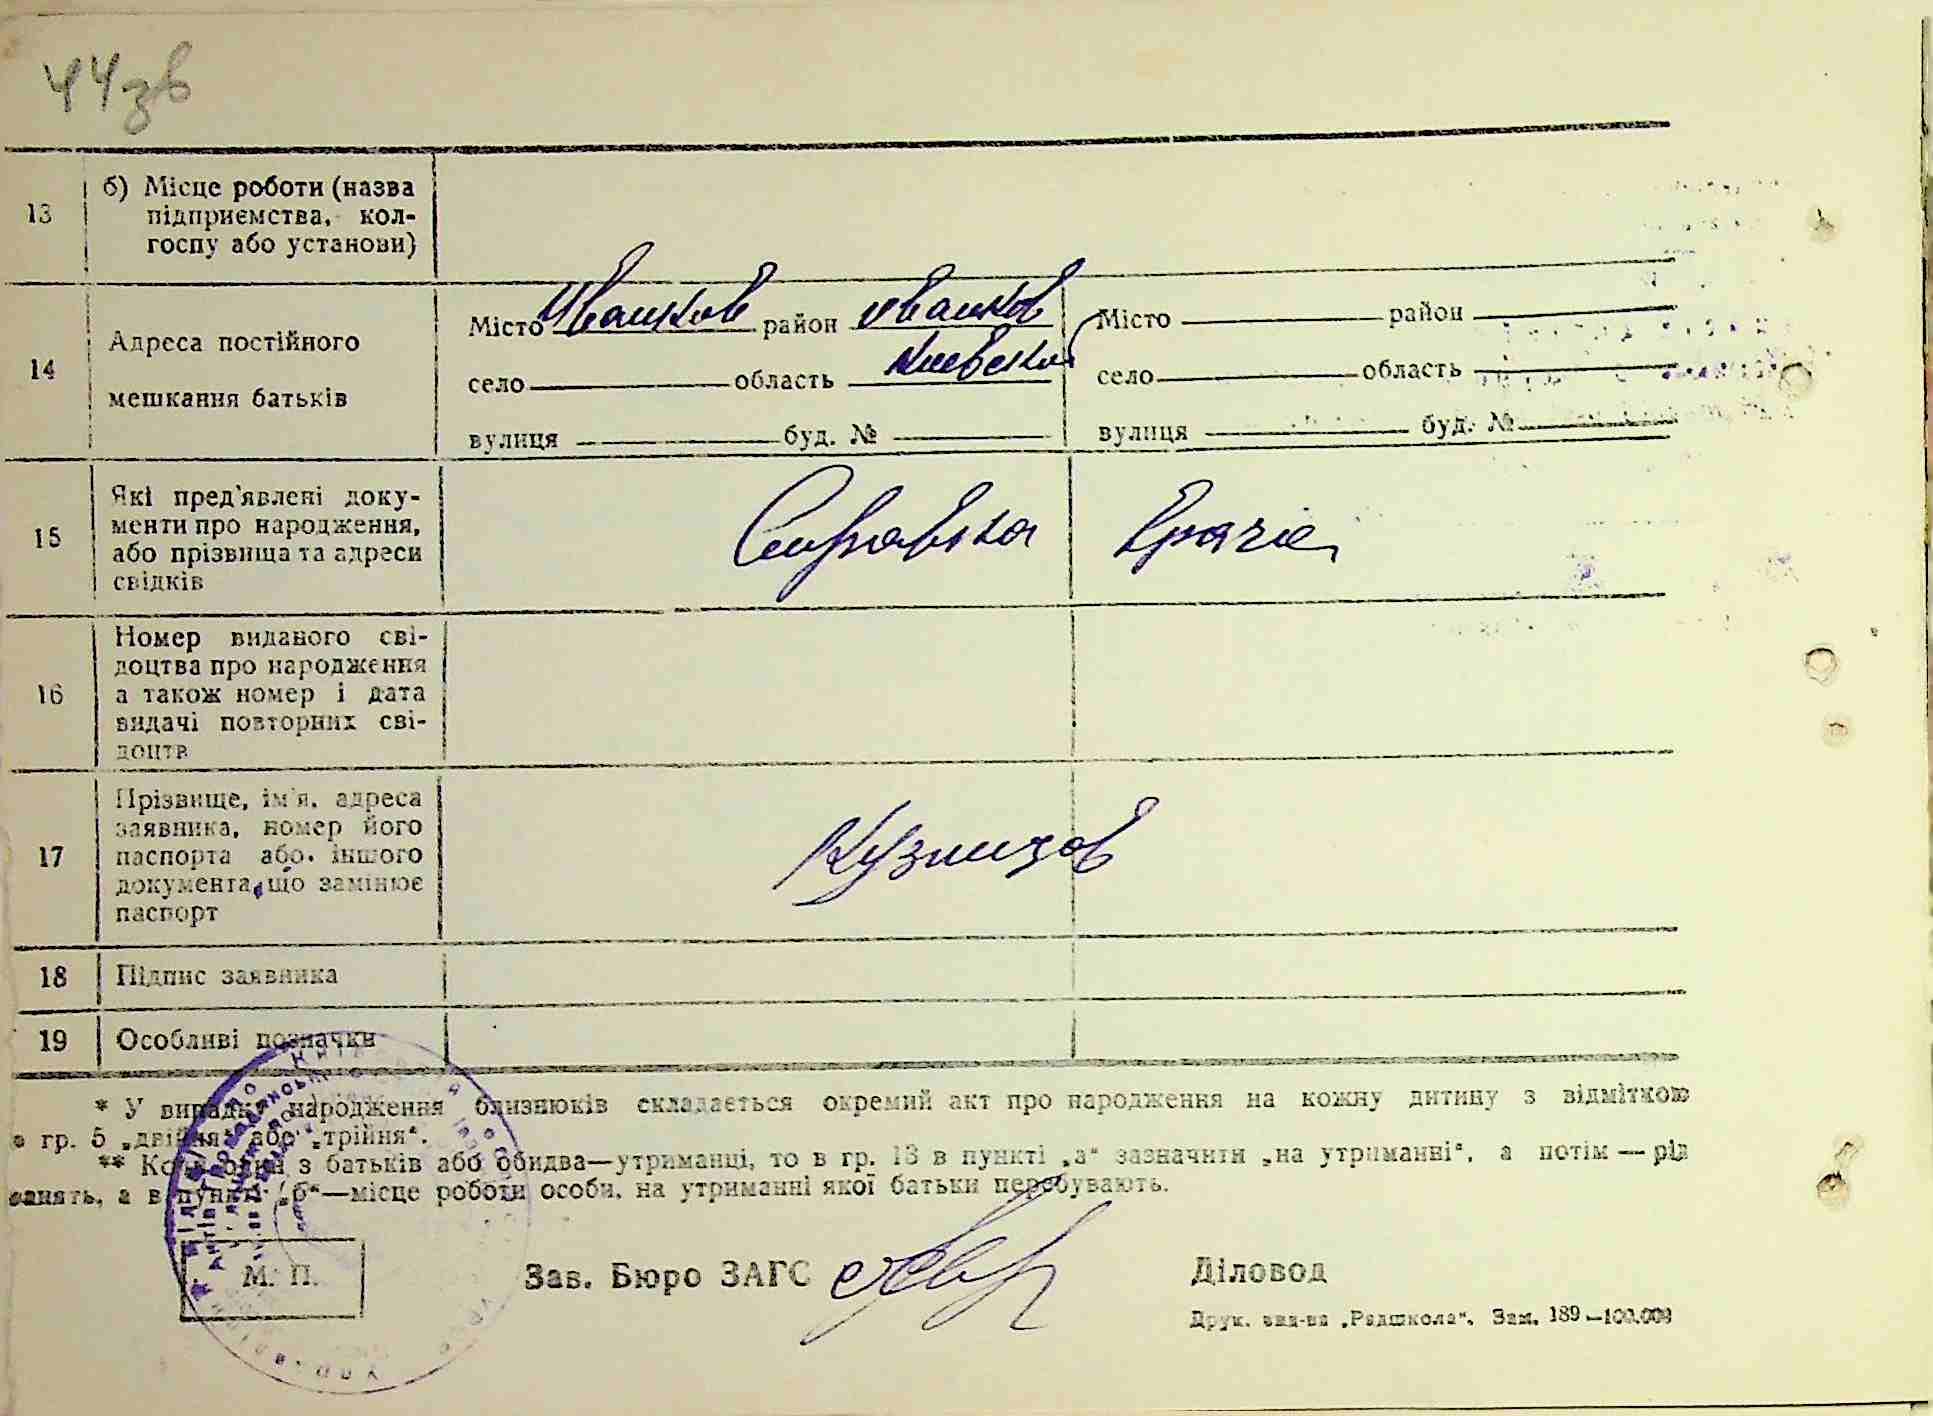 44зв
13 б) Місце роботи (назва
підприємства, кол-
госпу або установи)
14 Адреса постійного
мешкання батьків
Місто Иванков район Иванков Місто район
село область Киевской село область
вулиця буд. № вулиця буд. №
15 Які пред'явлені доку-
менти про народження,
або прізвища та адреси
свідків
Справка Врача
16 Номер виданого сві-
доцтва про народження
а також номер і дата
видачі повторних сві-
доцтв
17 Прізвище, ім'я, адреса
заявника, номер його
паспорта або іншого
документа, що замінює
паспорт
Кузнецов
18 Підпис заявника
19 Особливі позначки
* У випадку народження близнюків складається окремий акт про народження на кожну дитину з відміткою
в гр. 5 „двійня“ або „трійня“.
** Коли один з батьків або обидва—утриманці, то в гр. 13 в пункті „а“ зазначити „на утриманні“, а потім — рід
занять, а в пункті „б“—місце роботи особи, на утриманні якої батьки перебувають.
М. П. Зав. Бюро ЗАГС Діловод
Друк. вид-ва „Радшкола“. Зам. 189—100.000